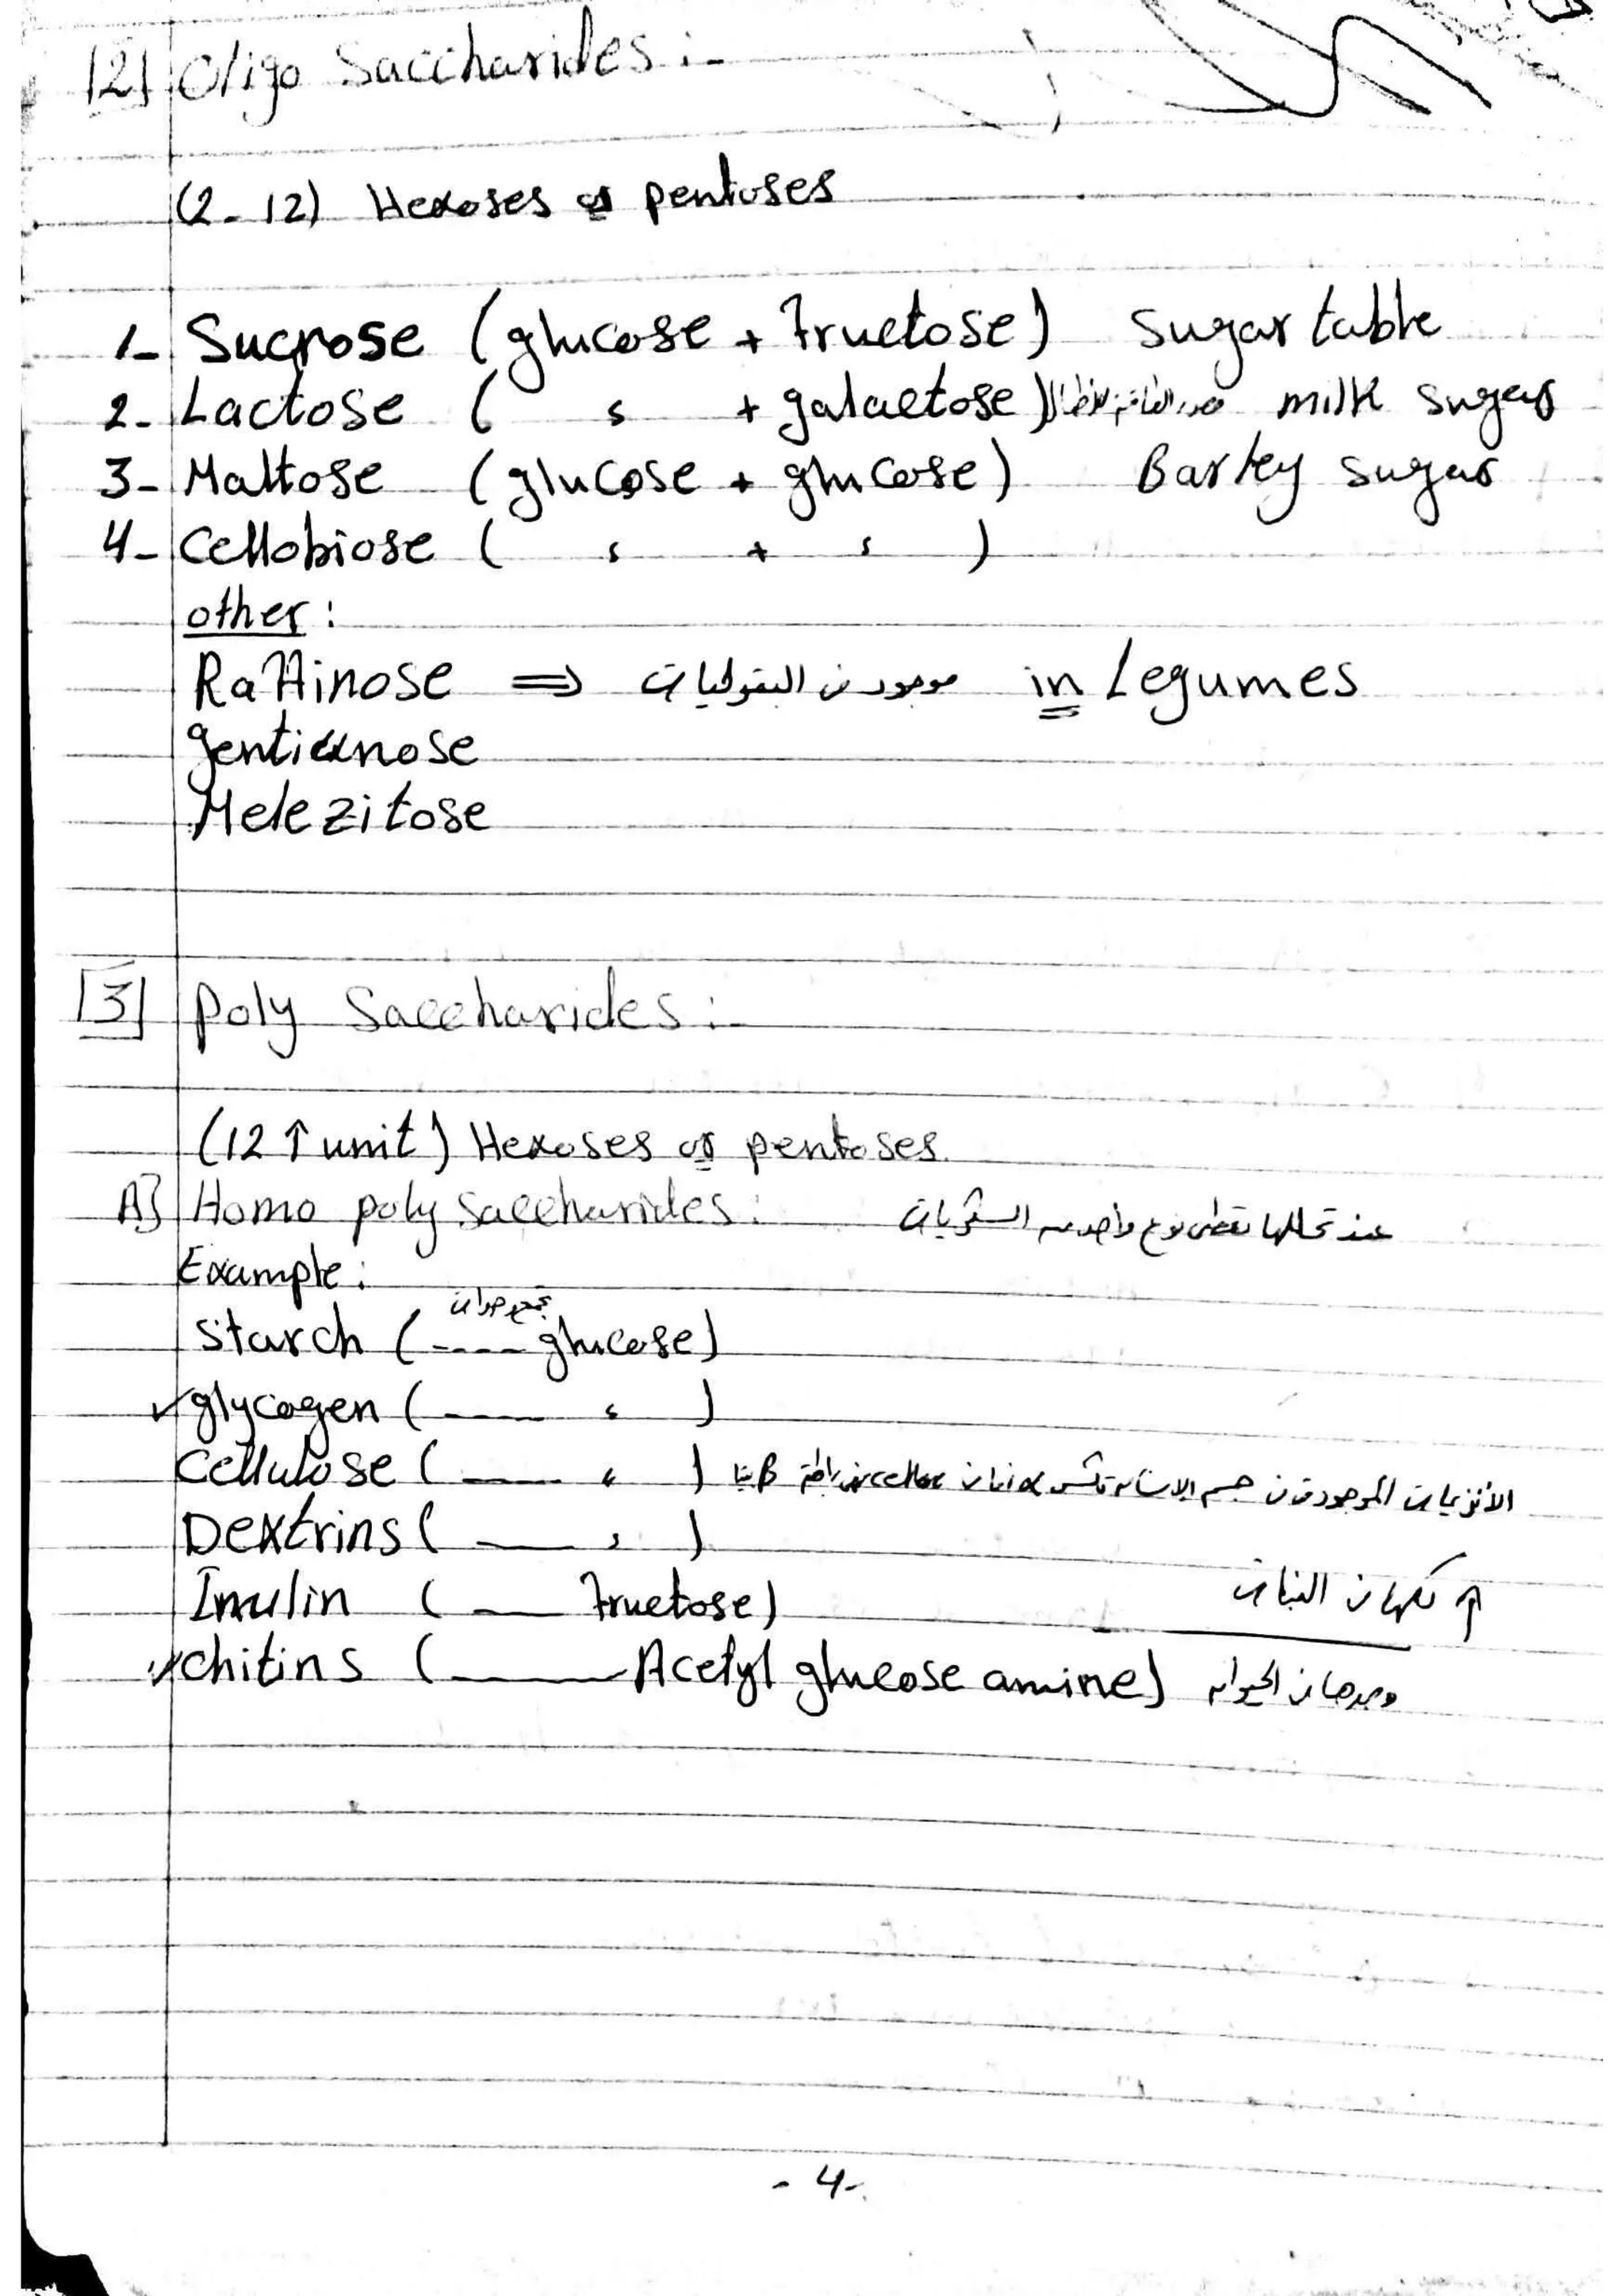 [2] Oligo Saccharides :-
(2-12) Hexoses or pentoses
1- Sucrose (glucose + fructose) Sugar table
2- Lactose ( ، + galactose) مصدر الطاقة للأطفال milk sugar
3- Maltose (glucose + glucose) Barley sugar
4- Cellobiose ( ، + ، )
other :
Raffinose ⇒ موجود في البقوليات in Legumes
gentianose
Melezitose
[3] poly Saccharides :-
(12 ↑ unit) Hexoses or pentoses
A] Homo poly saccharides : عند تحللها تعطي نوع واحد من السكريات
Example :
Starch (---- glucose)
✓ glycogen (—— ، )
Cellulose (—— ، ) الأنزيمات الموجودة في جسم الإنسان تكسر α أما في cellulose رابطة β بيتا
Dextrins ( —— ، )
Inulin ( —— fructose)
↑ كلها في النبات
✓ chitins (—— Acetyl glucose amine) الحيوان
- 4 -